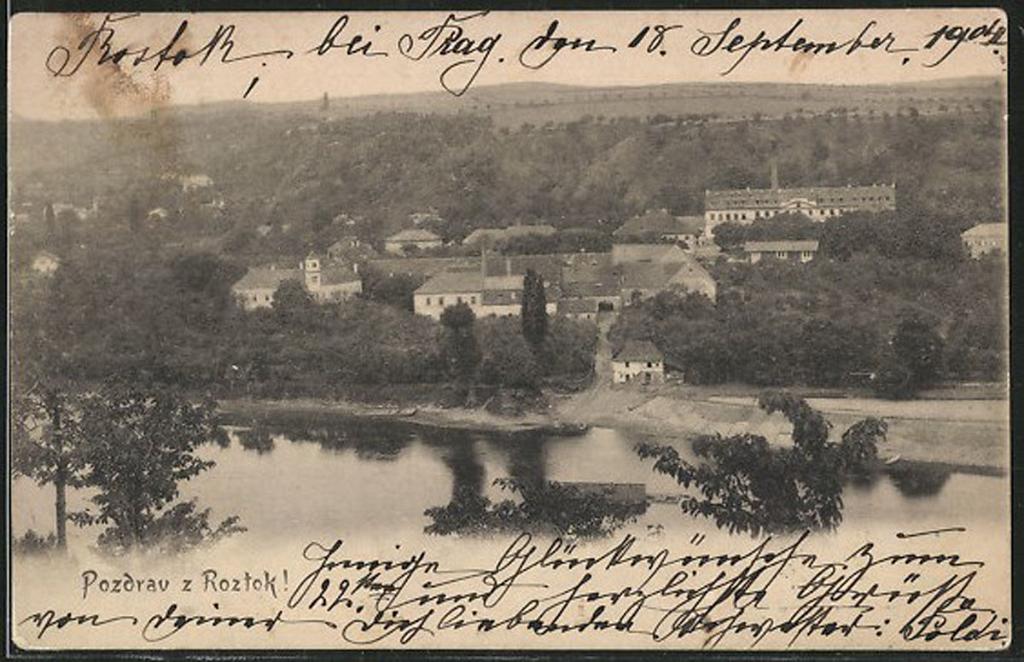 Rostok, bei Prag. den 18. September, 1904.
Pozdrav z Roztok!
Innige Glückwünsche zum
22sten und herzlichste Grüsse
von deiner Dich liebenden Schwester: Poldi.